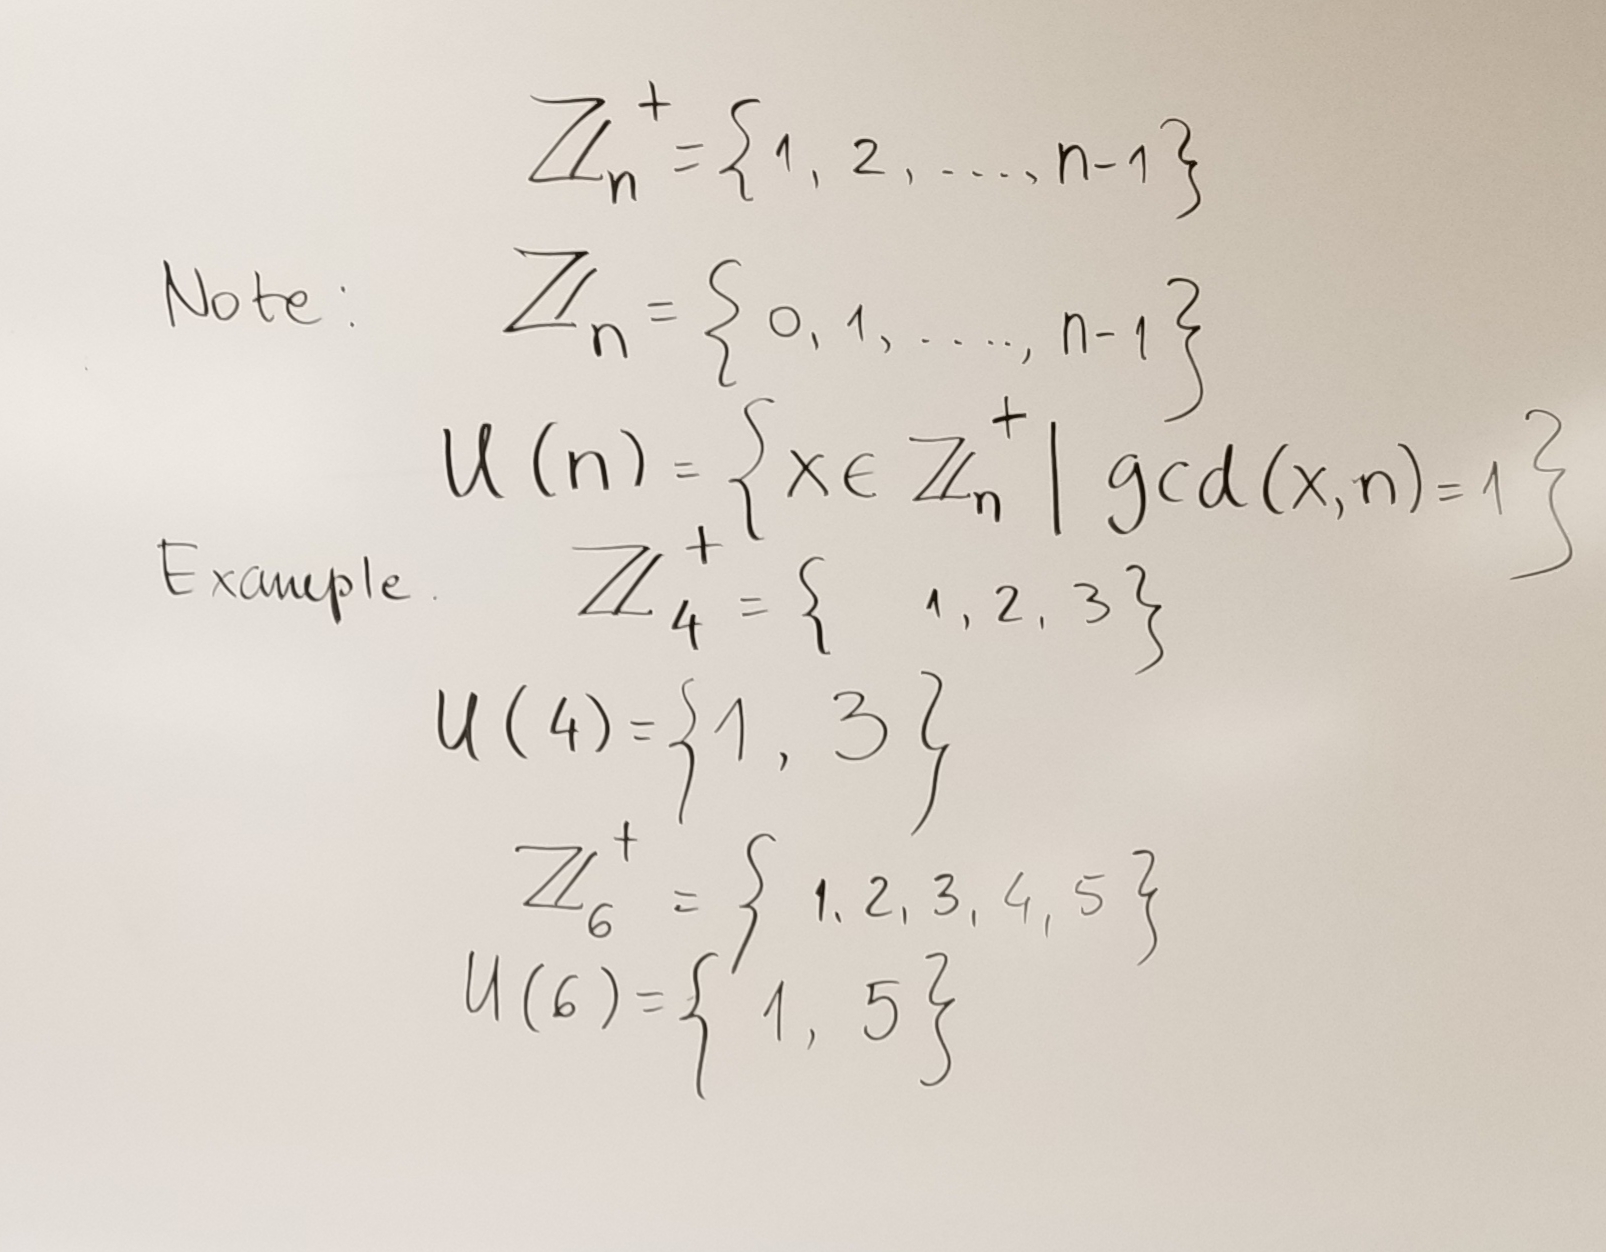 ℤₙ⁺ = {1, 2, ...., n-1}
Note: ℤₙ = {0, 1, ....., n-1}
U(n) = {x ∈ ℤₙ⁺ | gcd(x,n) = 1}
Example. ℤ₄⁺ = { 1, 2, 3}
U(4) = {1, 3}
ℤ₆⁺ = { 1, 2, 3, 4, 5}
U(6) = { 1, 5}